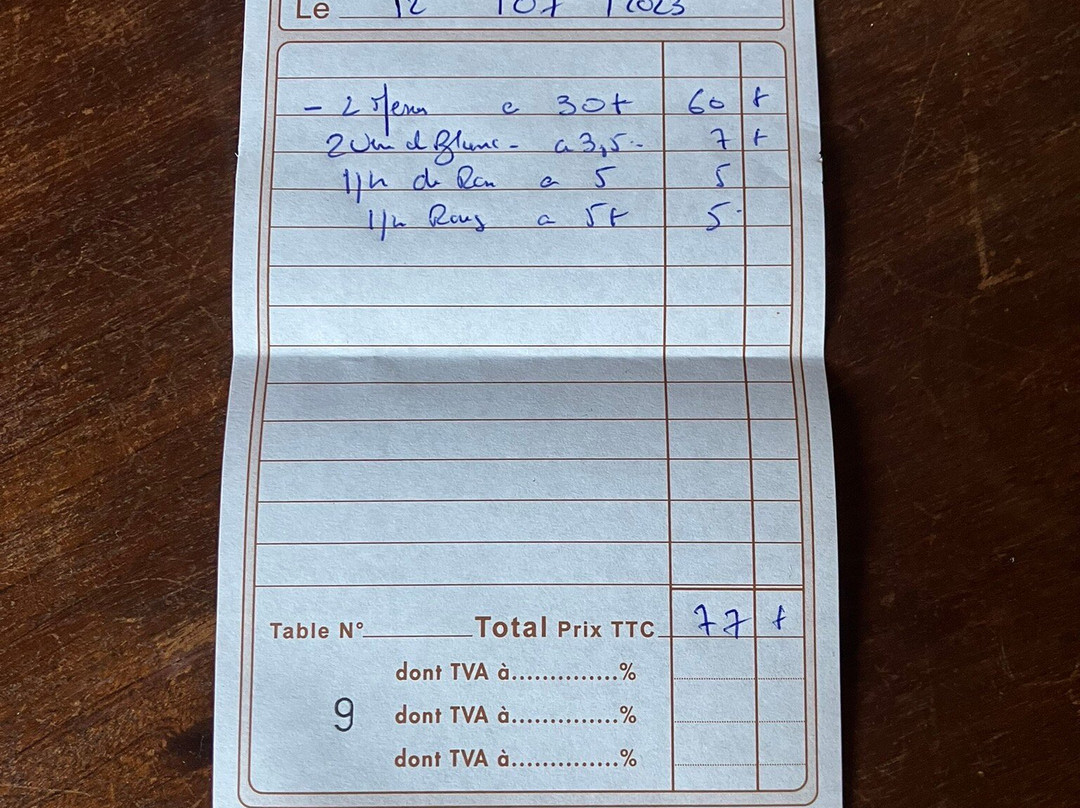 Le 12 / 07 / 2023
- 2 Menu a 30 € 60 €
2 Vin d Blanc - a 3,5 - 7 €
1/4 de Ros a 5 5
1/4 Roug a 5 € 5
Table N° Total Prix TTC 77 €
dont TVA à..............%
9 dont TVA à..............%
dont TVA à..............%